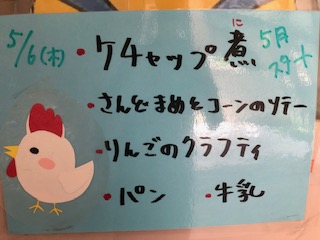 5/6(木)
・ケチャップ煮
に
5月
スタート
・さんどまめとコーンのソテー
・りんごのクラフティ
・パン ・牛乳